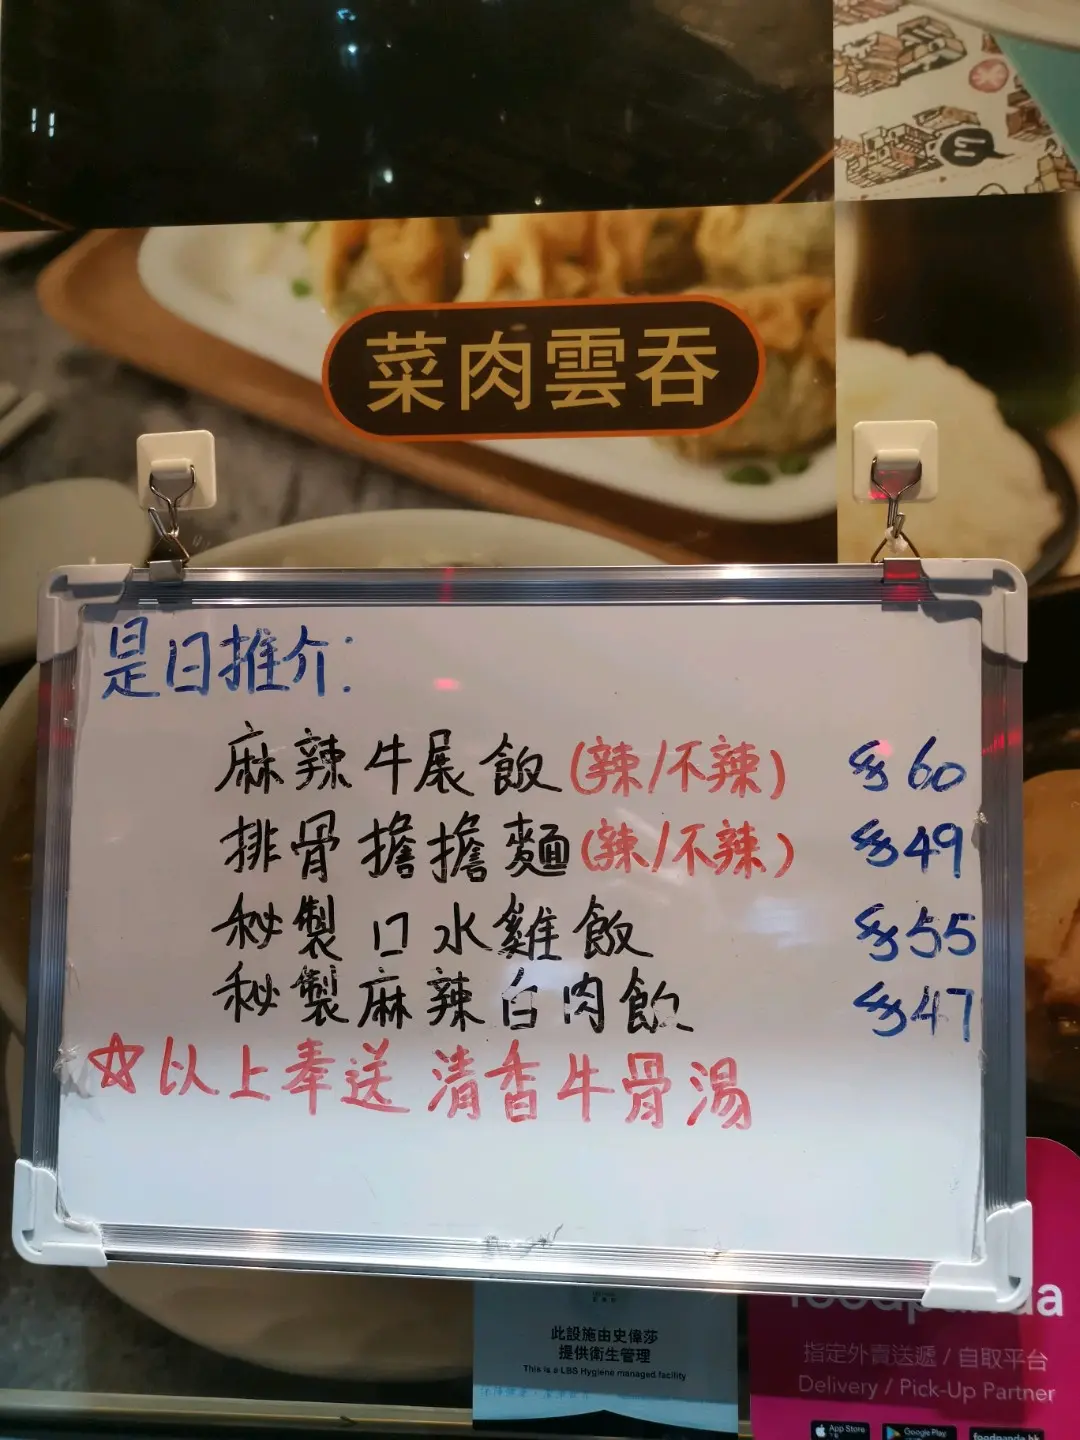 菜肉雲吞
是日推介:
麻辣牛展飯(辣/不辣) $60
排骨擔擔麵(辣/不辣) $49
秘製口水雞飯 $55
秘製麻辣白肉飯 $47
☆以上奉送清香牛骨湯
此設施由史偉莎
提供衛生管理
This is a LBS Hygiene managed facility
foodpanda
指定外賣送遞 / 自取平台
Delivery / Pick-Up Partner
App Store
Google Play
foodpanda.hk